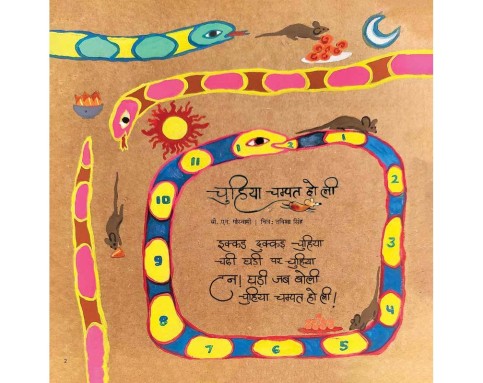 12
11
1
10
2
चुहिया चम्पत हो ली
चित्र: सिंह
इक्कड़ दुक्कड़ चुहिया
चढ़ी घड़ी पर चुहिया
टन! घड़ी जब बोली
चुहिया चम्पत हो ली!
9
3
8
4
7
6
5
2